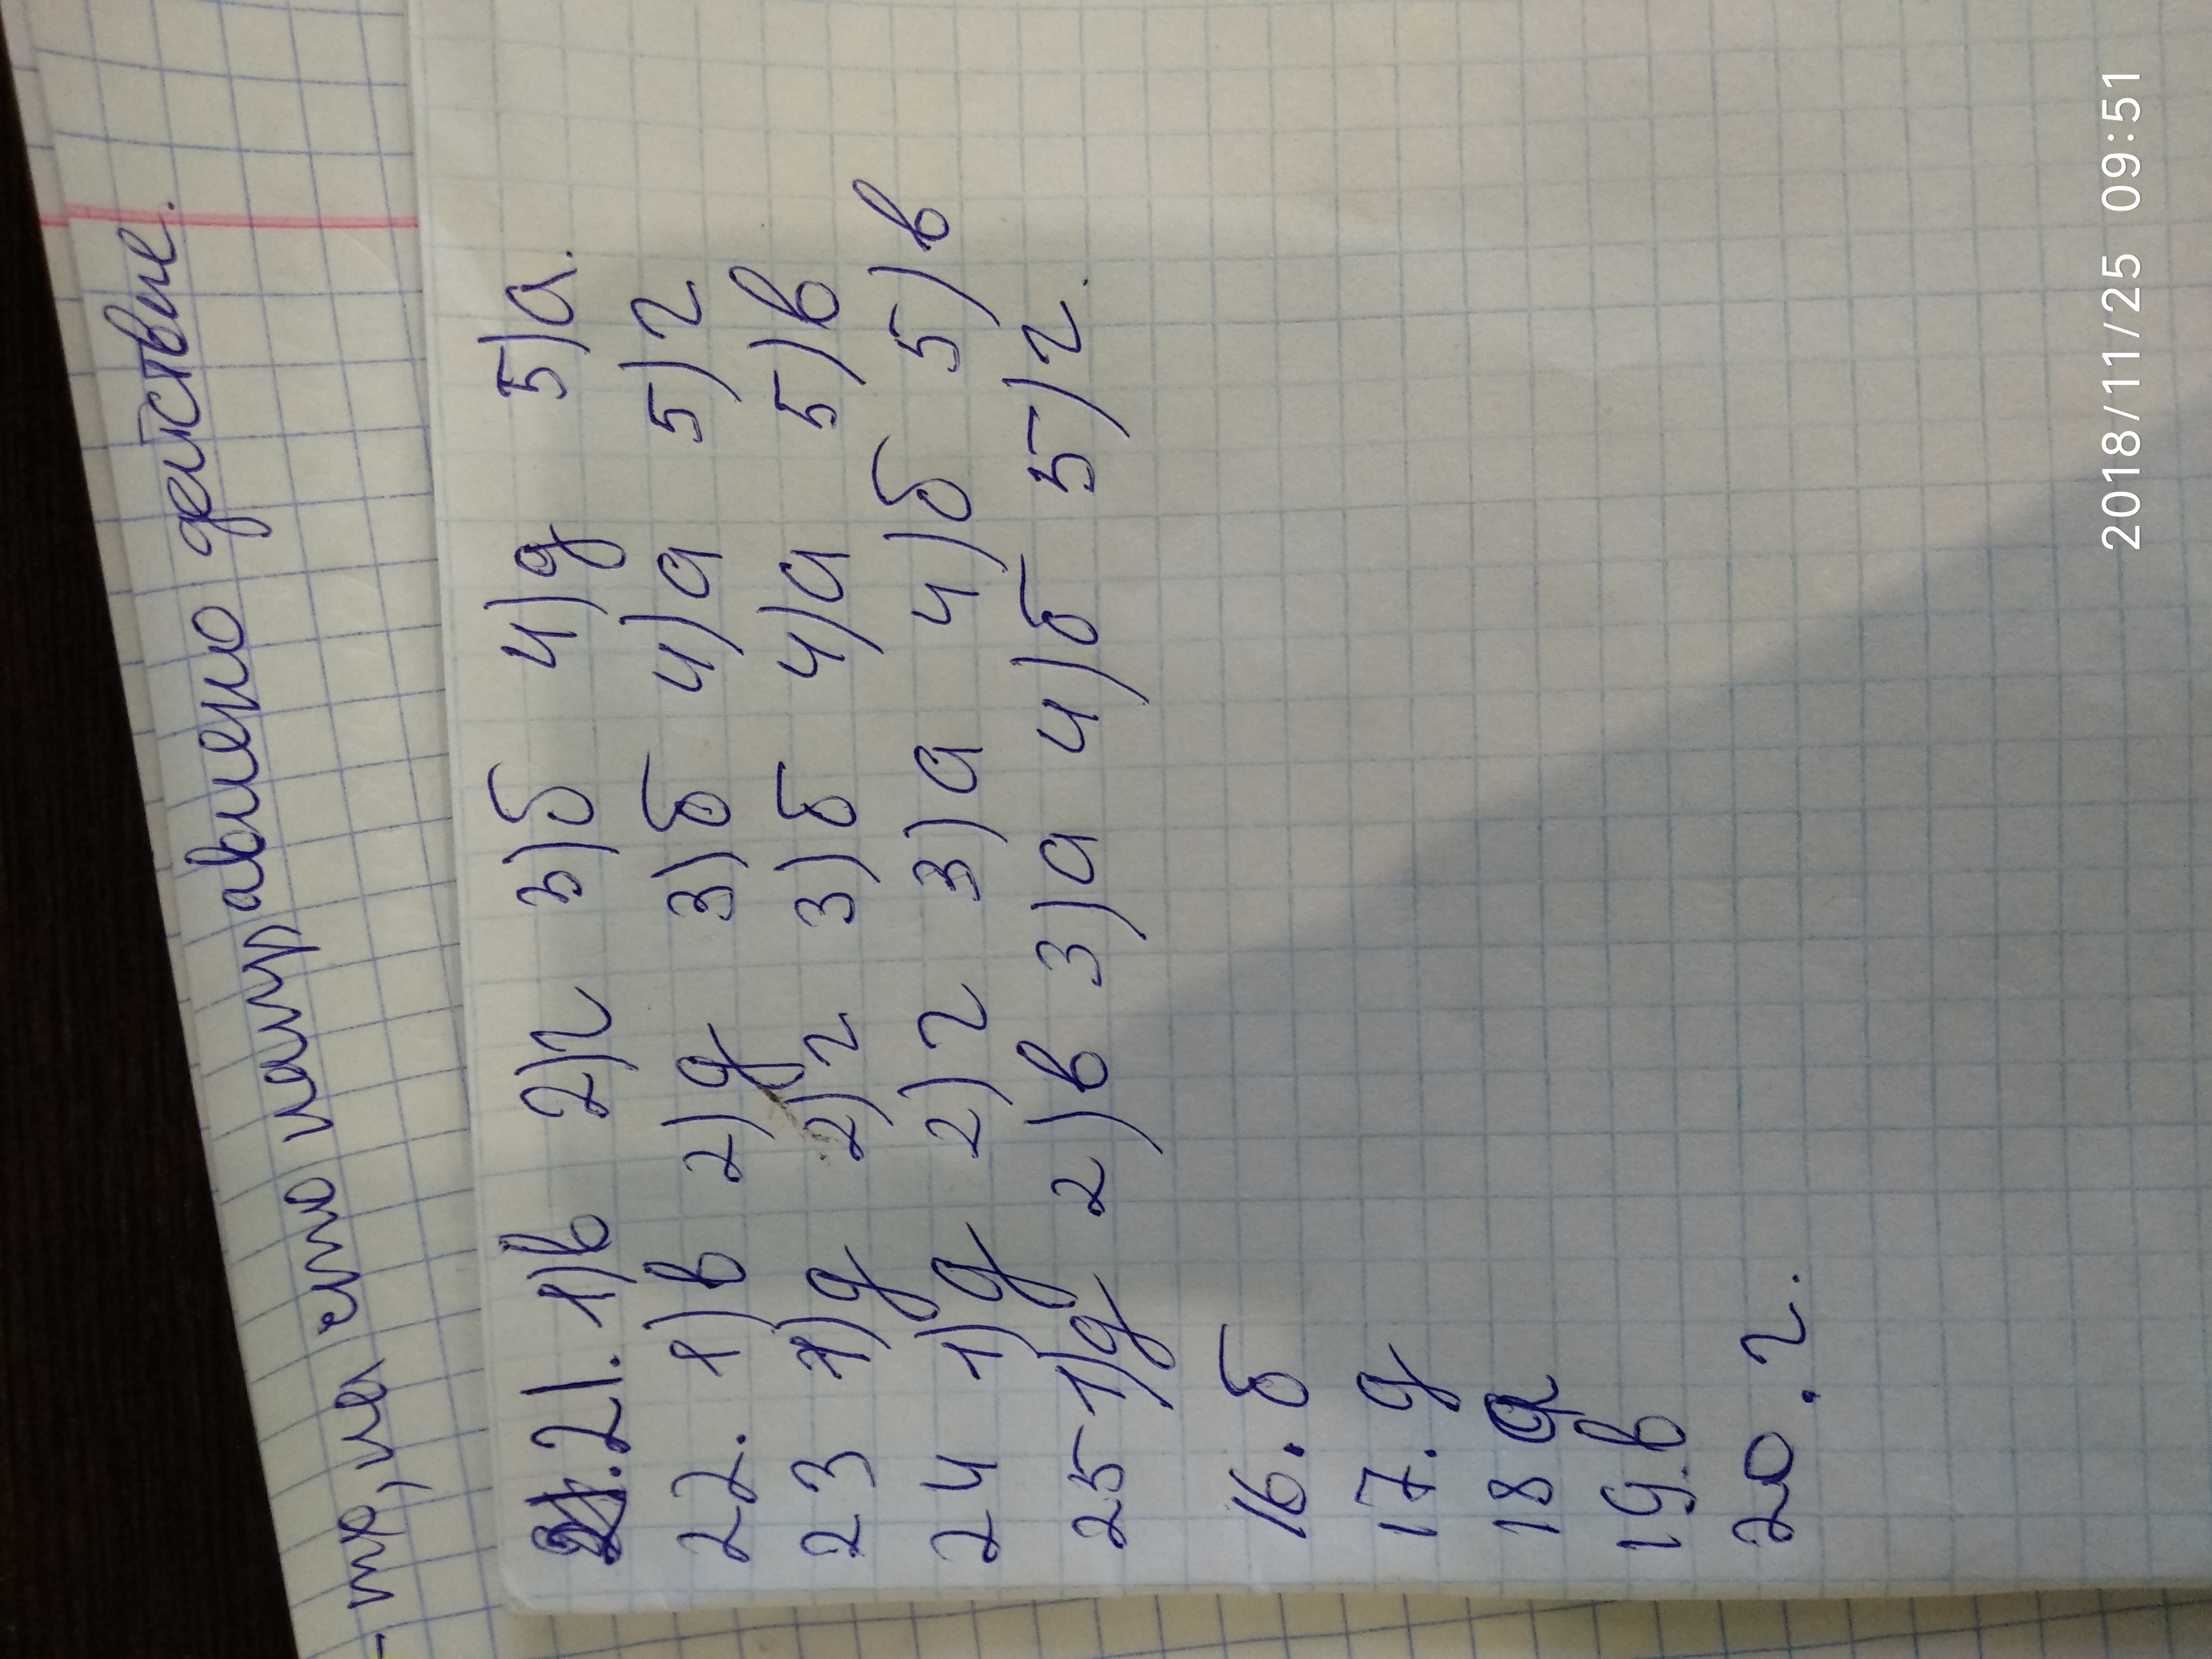 - те, на что направлено действие.
21. 1)в 2)г 3)б 4)д 5)а.
22. 1)в 2)д 3)б 4)а 5)г
23 1)д 2)г 3)б 4)а 5)в
24 1)д 2)г 3)а 4)б 5)в
25 1)д 2)в 3)а 4)б 5)г.
16. б
17. д
18 а
19. в
20. г.
2018/11/25 09:51